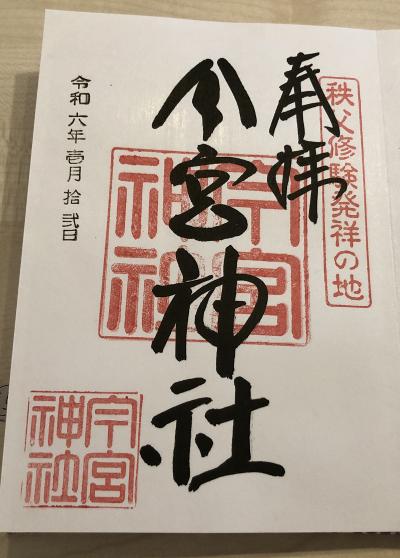 秩父修験発祥の地
奉拝
今宮神社
今宮神社
今宮神社
令和六年壱月拾弐日